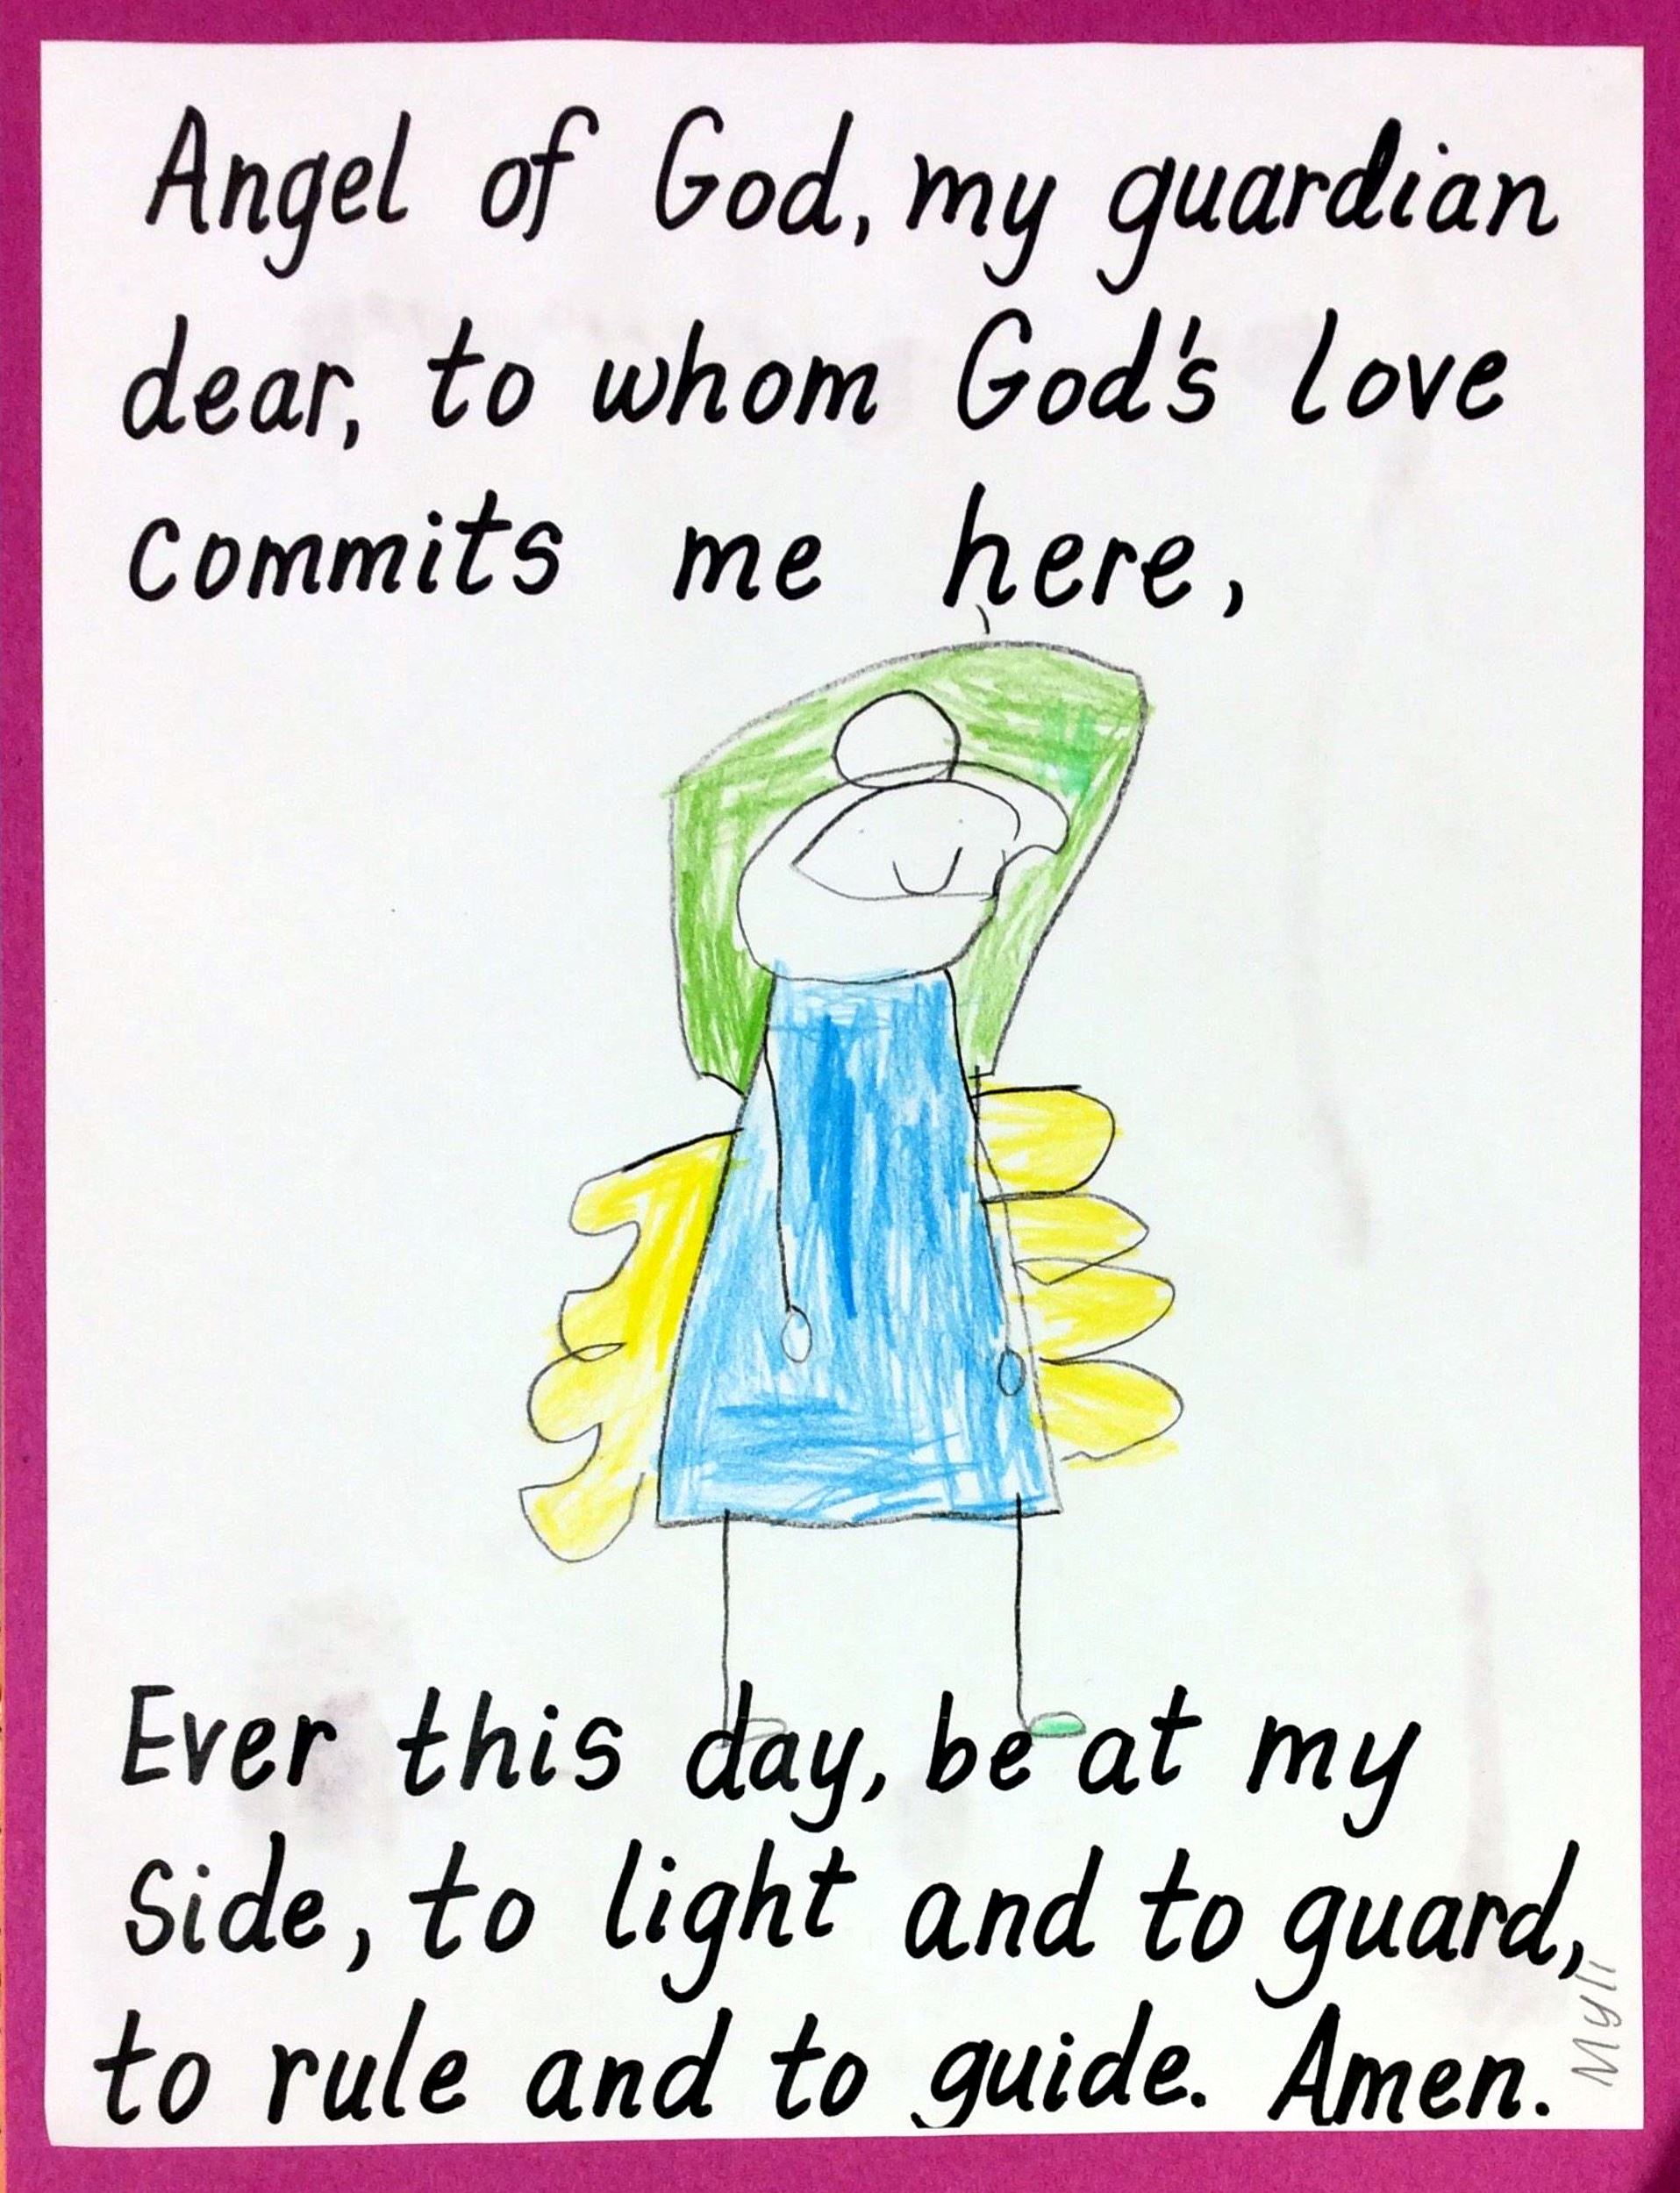 Angel of God, my guardian
dear, to whom God's love
commits me here,
Ever this day, be at my
side, to light and to guard,
to rule and to guide. Amen.
Myli